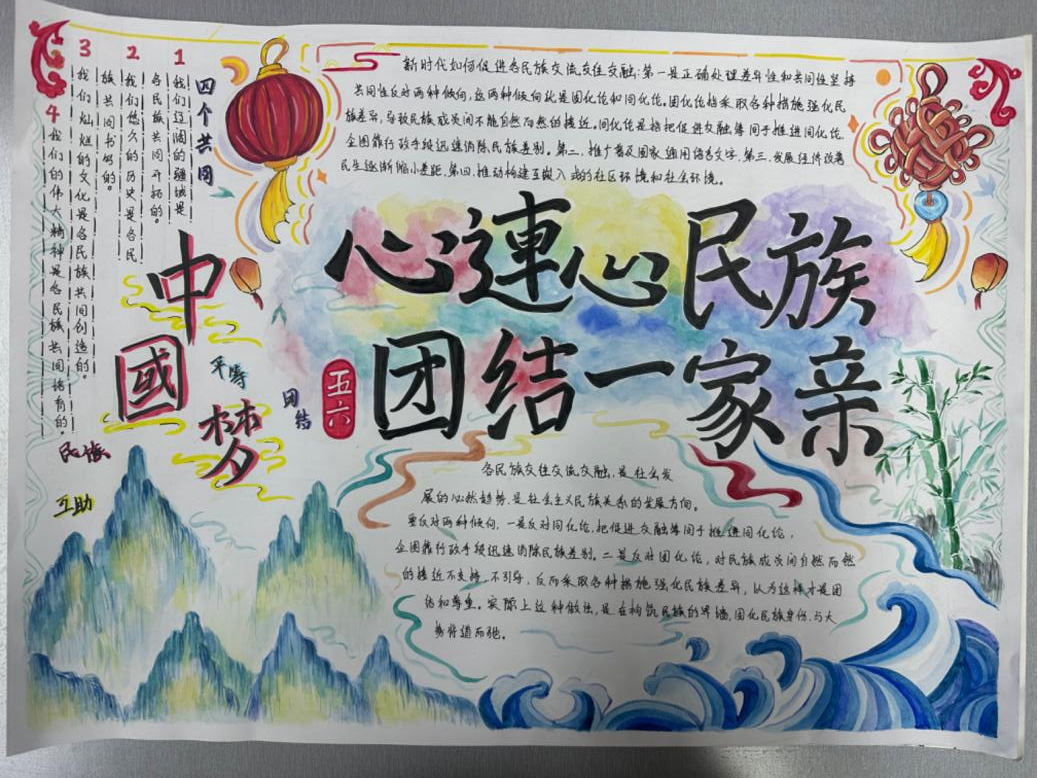 四个共同
1
我们辽阔的疆域是
各民族共同开拓的。
2
我们悠久的历史是各民
族共同书写的。
3
我们灿烂的文化是各民族共同创造的。
4 我们的伟大精神是各民族共同培育的。
新时代如何促进各民族交流交往交融:第一是正确处理差异性和共同性坚持
共同性反对两种倾向,这两种倾向就是固化论和同化论。固化论指采取各种措施强化民
族差异,导致民族成员间不能自然而然的接近。同化论是指把促进交融等同于推进同化论,
企图靠行政手段迅速消除民族差别。第二,推广普及国家通用语言文字,第三,发展经济改善
民生逐渐缩小差距,第四,推动构建互嵌入式的社区环境和社会环境。
心連心民族
团结一家亲
五六
中國梦
平等
团结
民族
互助
各民族交往交流交融,是社会发
展的必然趋势是社会主义民族关系的发展方向。
要反对两种倾向,一是反对同化论,把促进交融等同于推进同化论,
企图靠行政手段迅速消除民族差别。二是反对固化论,对民族成员间自然而然
的接近不支持,不引导,反而采取各种措施强化民族差异,认为这样才是团
结和尊重。实际上这种做法,是在构筑民族的界墙,固化民族身份,与大
势背道而驰。